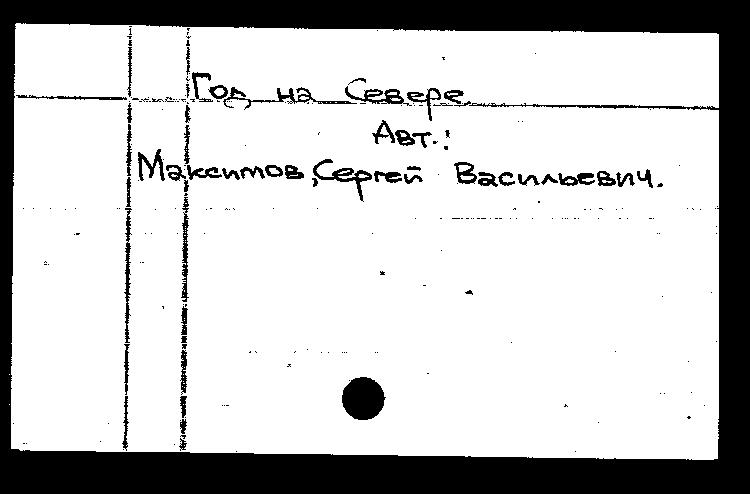 Год на Севере
Авт.:
Максимов, Сергей Васильевич.